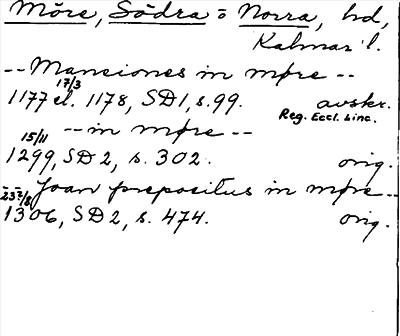 Möre, Södra o Norra, hd,
Kalmar l.
-- Mansiones in møre --
17/3
1177 el. 1178, SD1, s. 99. avskr.
Reg. Eccl. Linc.
-- in møre --
15/11
1299, SD2, s. 302. orig.
-- Joan prepositus in møre --
1306, SD2, s. 474. orig.